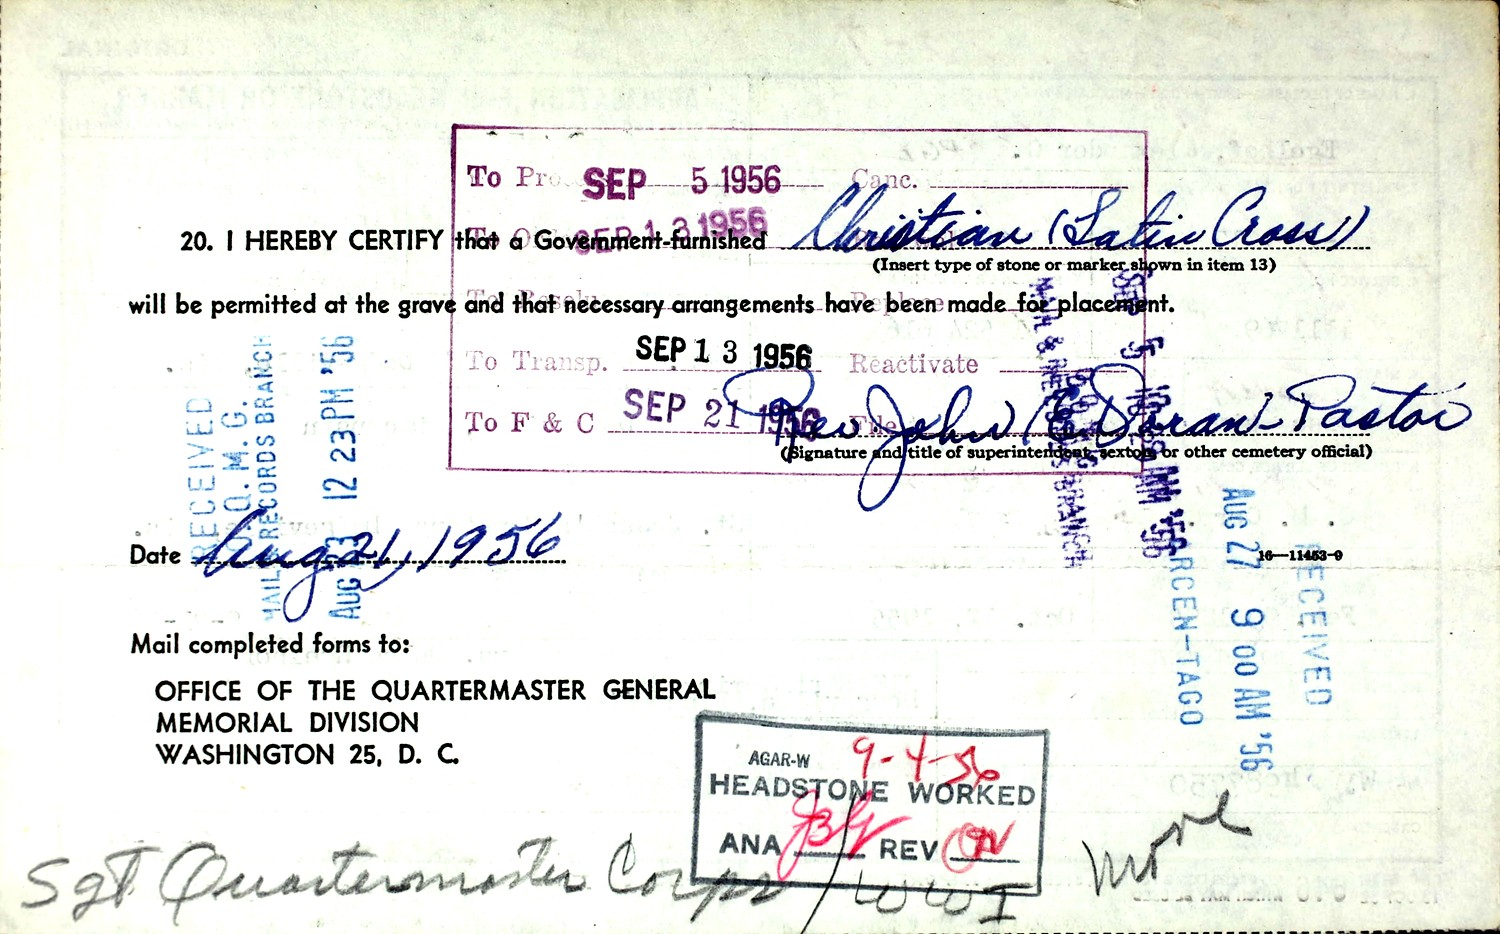 To Pro. SEP 5 1956 Canc.
SEP 13 1956
20. I HEREBY CERTIFY that a Government-furnished Christian (Latin Cross)
(Insert type of stone or marker shown in item 13)
To Resolu Replace
will be permitted at the grave and that necessary arrangements have been made for placement.
To Transp. SEP 13 1956 Reactivate
To F & C SEP 21 1956 File
Rev John E Doran - Pastor
(Signature and title of superintendent, sexton or other cemetery official)
RECEIVED
O.Q.M.G.
MAIL & RECORDS BRANCH
AUG 23 12 23 PM '56
SEP 5
BRANCH
AUG 27 9 00 AM '56
RECEIVED
RCEN-TAGO
Date Aug 21, 1956
16—11453-9
Mail completed forms to:
OFFICE OF THE QUARTERMASTER GENERAL
MEMORIAL DIVISION
WASHINGTON 25, D. C.
AGAR-W 9-4-56
HEADSTONE WORKED
ANA JBG REV
Sgt Quartermaster Corps / WWI